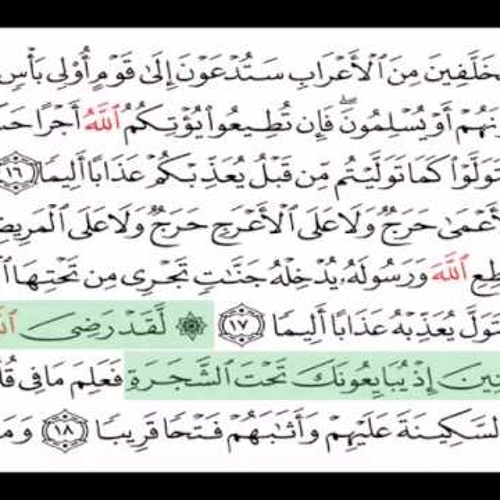 مُخَلَّفِينَ مِنَ ٱلْأَعْرَابِ سَتُدْعَوْنَ إِلَىٰ قَوْمٍ أُوْلِى بَأْسٍ
ونَهُمْ أَوْ يُسْلِمُونَۖ فَإِن تُطِيعُوا۟ يُؤْتِكُمُ ٱللَّهُ أَجْرًا حَسَ
تَوَلَّوْا۟ كَمَا تَوَلَّيْتُم مِّن قَبْلُ يُعَذِّبْكُمْ عَذَابًا أَلِيمًا ١٦
ٱلْأَعْمَىٰ حَرَجٌ وَلَا عَلَى ٱلْأَعْرَجِ حَرَجٌ وَلَا عَلَى ٱلْمَرِيضِ
طِعِ ٱللَّهَ وَرَسُولَهُۥ يُدْخِلْهُ جَنَّٰتٍ تَجْرِى مِن تَحْتِهَا ٱ
تَوَلَّ يُعَذِّبْهُ عَذَابًا أَلِيمًا ١٧ ۞ لَّقَدْ رَضِىَ ٱلل
نِينَ إِذْ يُبَايِعُونَكَ تَحْتَ ٱلشَّجَرَةِ فَعَلِمَ مَا فِى قُل
ٱلسَّكِينَةَ عَلَيْهِمْ وَأَثَٰبَهُمْ فَتْحًا قَرِيبًا ١٨ وَمَ